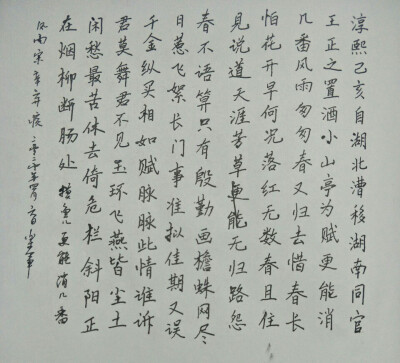 淳熙己亥自湖北漕移湖南同官
王正之置酒小山亭为赋更能消
几番风雨匆匆春又归去惜春长
怕花开早何况落红无数春且住
见说道天涯芳草更能无归路怨
春不语算只有殷勤画檐蛛网尽
日惹飞絮长门事准拟佳期又误
千金纵买相如赋脉脉此情谁诉
君莫舞君不见玉环飞燕皆尘土
闲愁最苦休去倚危栏斜阳正
在烟柳断肠处 摸鱼儿更能消几番
风雨宋辛弃疾